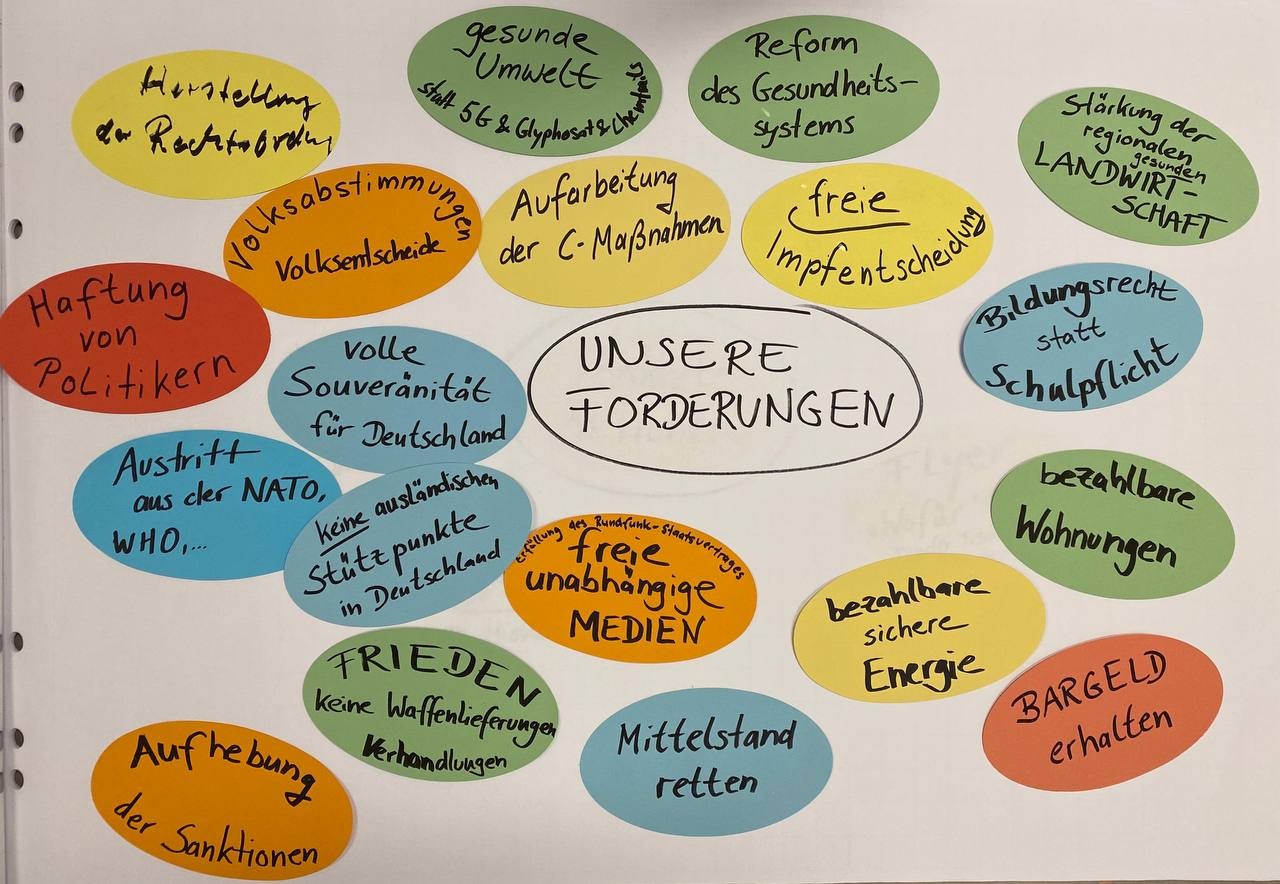 gesunde
Umwelt
statt 5G & Glyphosat & Chemtrails
Reform
des Gesundheits-
systems
Herstellung
der Rechtsordnung
Stärkung der
regionalen
gesunden
LANDWIRT-
SCHAFT
Volksabstimmungen
Volksentscheide
Aufarbeitung
der C-Maßnahmen
freie
Impfentscheidung
Haftung
von
Politikern
volle
Souveränität
für Deutschland
UNSERE
FORDERUNGEN
Bildungsrecht
statt
Schulpflicht
Austritt
aus der NATO,
WHO,...
keine ausländischen
Stützpunkte
in Deutschland
Erfüllung des Rundfunk-Staatsvertrages
freie
unabhängige
MEDIEN
bezahlbare
Wohnungen
bezahlbare
sichere
Energie
FRIEDEN
keine Waffenlieferungen
Verhandlungen
Mittelstand
retten
BARGELD
erhalten
Aufhebung
der Sanktionen